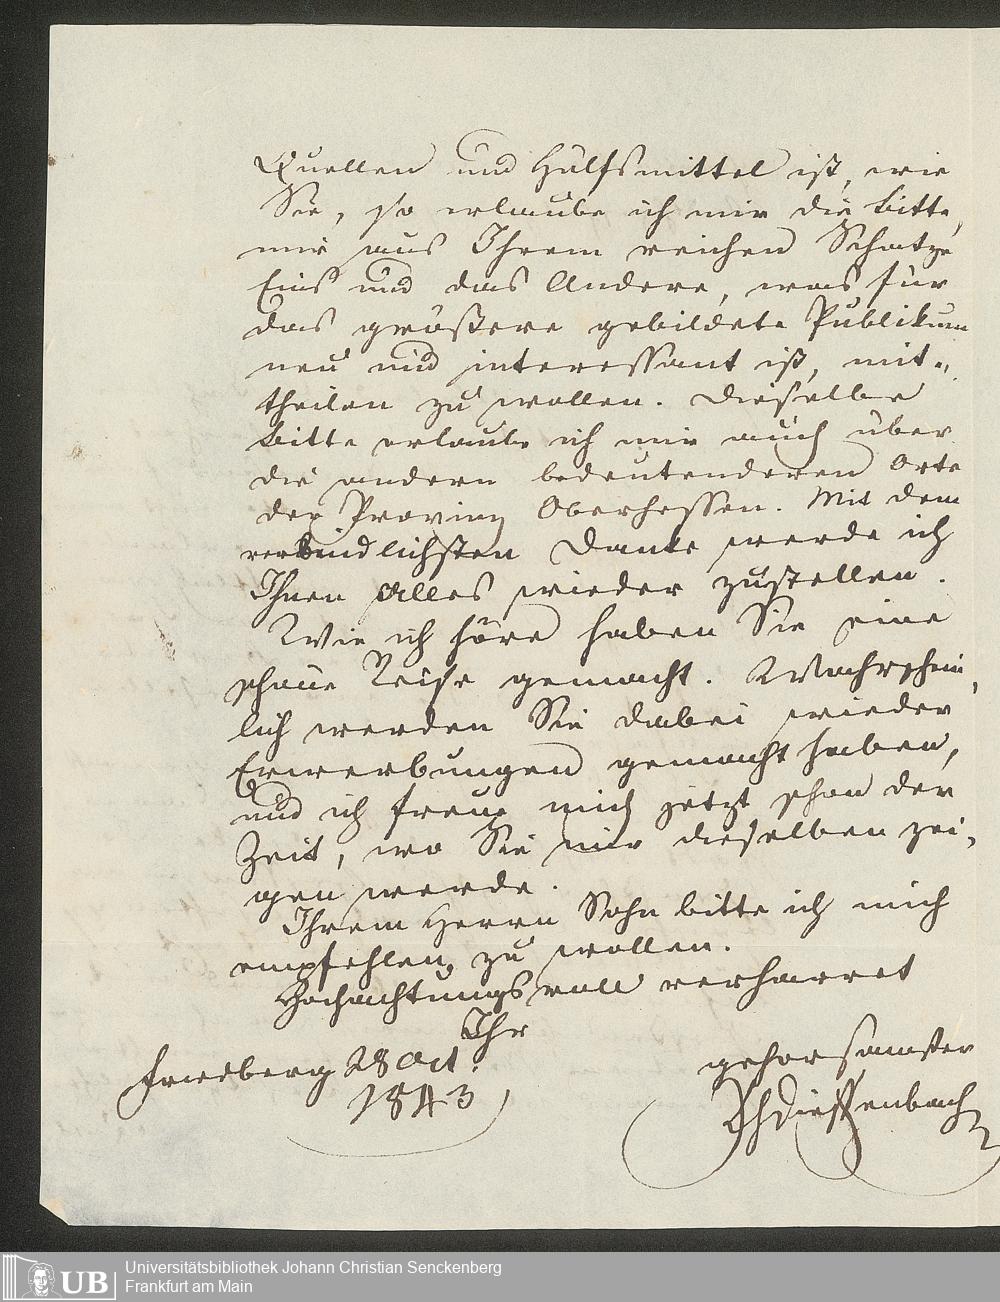 Quellen und Hülfsmittel ist, wie
Sie, so erlaube ich mir die Bitte,
mir aus Ihrem reichen Schatze
Eins und das Andere, was für
das größere gebildete Publikum
neu und interessant ist, mit-
theilen zu wollen. Dieselbe
Bitte erlaube ich mir auch über
die andern bedeutenderen Orte
der Provinz Oberhessen. Mit dem
verbindlichsten Danke werde ich
Ihnen Alles wieder zustellen.
Wie ich höre haben Sie eine
schöne Reise gemacht. Wahrschein-
lich werden Sie dabei wieder
Erwerbungen gemacht haben,
und ich freue mich jetzt schon der
Zeit, wo Sie mir dieselben zei-
gen werde.
Ihrem Herrn Sohn bitte ich mich
empfehlen zu wollen.
Hochachtungsvoll verharret
Ihr
Friedberg 28 Oct.
1843
gehorsamster
Ph Dieffenbach
UB
Universitätsbibliothek Johann Christian Senckenberg
Frankfurt am Main